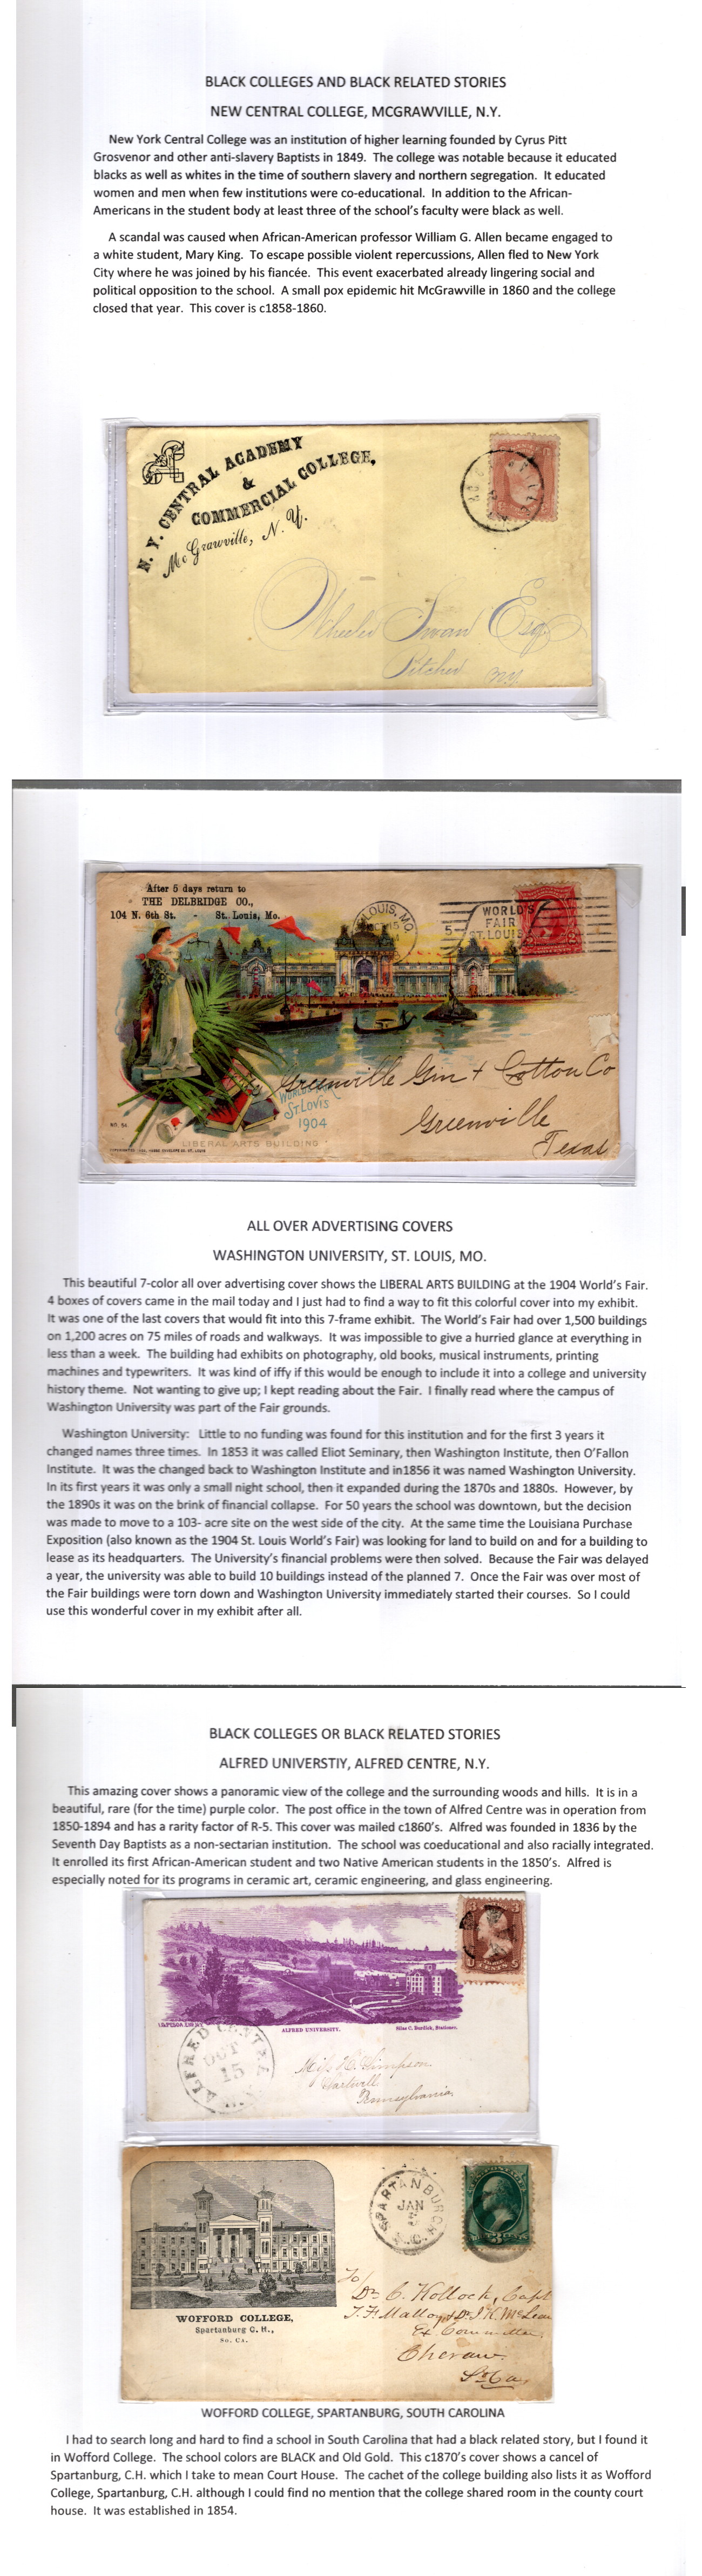 BLACK COLLEGES AND BLACK RELATED STORIES
NEW CENTRAL COLLEGE, MCGRAWVILLE, N.Y.
New York Central College was an institution of higher learning founded by Cyrus Pitt
Grosvenor and other anti-slavery Baptists in 1849. The college was notable because it educated
blacks as well as whites in the time of southern slavery and northern segregation. It educated
women and men when few institutions were co-educational. In addition to the African-
Americans in the student body at least three of the school's faculty were black as well.
A scandal was caused when African-American professor William G. Allen became engaged to
a white student, Mary King. To escape possible violent repercussions, Allen fled to New York
City where he was joined by his fiancée. This event exacerbated already lingering social and
political opposition to the school. A small pox epidemic hit McGrawville in 1860 and the college
closed that year. This cover is c1858-1860.
N. Y. CENTRAL ACADEMY
&
COMMERCIAL COLLEGE,
McGrawville, N. Y.
Wheeler Swan Esq
Pitcher NY
After 5 days return to
THE DELBRIDGE CO.,
104 N. 6th St. - St. Louis, Mo.
LOUIS, MO.
WORLD'S
FAIR
ST. LOUIS
The Greenville Gin & Cotton Co
Greenville
Texas
WORLD'S FAIR
ST. LOVIS
1904
NO. 54
LIBERAL ARTS BUILDING
ALL OVER ADVERTISING COVERS
WASHINGTON UNIVERSITY, ST. LOUIS, MO.
This beautiful 7-color all over advertising cover shows the LIBERAL ARTS BUILDING at the 1904 World's Fair.
4 boxes of covers came in the mail today and I just had to find a way to fit this colorful cover into my exhibit.
It was one of the last covers that would fit into this 7-frame exhibit. The World's Fair had over 1,500 buildings
on 1,200 acres on 75 miles of roads and walkways. It was impossible to give a hurried glance at everything in
less than a week. The building had exhibits on photography, old books, musical instruments, printing
machines and typewriters. It was kind of iffy if this would be enough to include it into a college and university
history theme. Not wanting to give up; I kept reading about the Fair. I finally read where the campus of
Washington University was part of the Fair grounds.
Washington University: Little to no funding was found for this institution and for the first 3 years it
changed names three times. In 1853 it was called Eliot Seminary, then Washington Institute, then O'Fallon
Institute. It was the changed back to Washington Institute and in1856 it was named Washington University.
In its first years it was only a small night school, then it expanded during the 1870s and 1880s. However, by
the 1890s it was on the brink of financial collapse. For 50 years the school was downtown, but the decision
was made to move to a 103- acre site on the west side of the city. At the same time the Louisiana Purchase
Exposition (also known as the 1904 St. Louis World's Fair) was looking for land to build on and for a building to
lease as its headquarters. The University's financial problems were then solved. Because the Fair was delayed
a year, the university was able to build 10 buildings instead of the planned 7. Once the Fair was over most of
the Fair buildings were torn down and Washington University immediately started their courses. So I could
use this wonderful cover in my exhibit after all.
BLACK COLLEGES OR BLACK RELATED STORIES
ALFRED UNIVERSTIY, ALFRED CENTRE, N.Y.
This amazing cover shows a panoramic view of the college and the surrounding woods and hills. It is in a
beautiful, rare (for the time) purple color. The post office in the town of Alfred Centre was in operation from
1850-1894 and has a rarity factor of R-5. This cover was mailed c1860's. Alfred was founded in 1836 by the
Seventh Day Baptists as a non-sectarian institution. The school was coeducational and also racially integrated.
It enrolled its first African-American student and two Native American students in the 1850's. Alfred is
especially noted for its programs in ceramic art, ceramic engineering, and glass engineering.
ALFRED UNIVERSITY.
Silas C. Burdick, Stationer.
ALFRED CENTRE
OCT
15
Miss H. Simpson
Hartwell
Pennsylvania
SPARTANBURG
JAN
5
S.C.
WOFFORD COLLEGE,
Spartanburg C. H.,
So. Ca.
To
Dr. C. Kollock, Capt
T. F. Malloy & Dr. J. H. McLean
Ex. Committee
Cheraw
So Ca,
WOFFORD COLLEGE, SPARTANBURG, SOUTH CAROLINA
I had to search long and hard to find a school in South Carolina that had a black related story, but I found it
in Wofford College. The school colors are BLACK and Old Gold. This c1870's cover shows a cancel of
Spartanburg, C.H. which I take to mean Court House. The cachet of the college building also lists it as Wofford
College, Spartanburg, C.H. although I could find no mention that the college shared room in the county court
house. It was established in 1854.